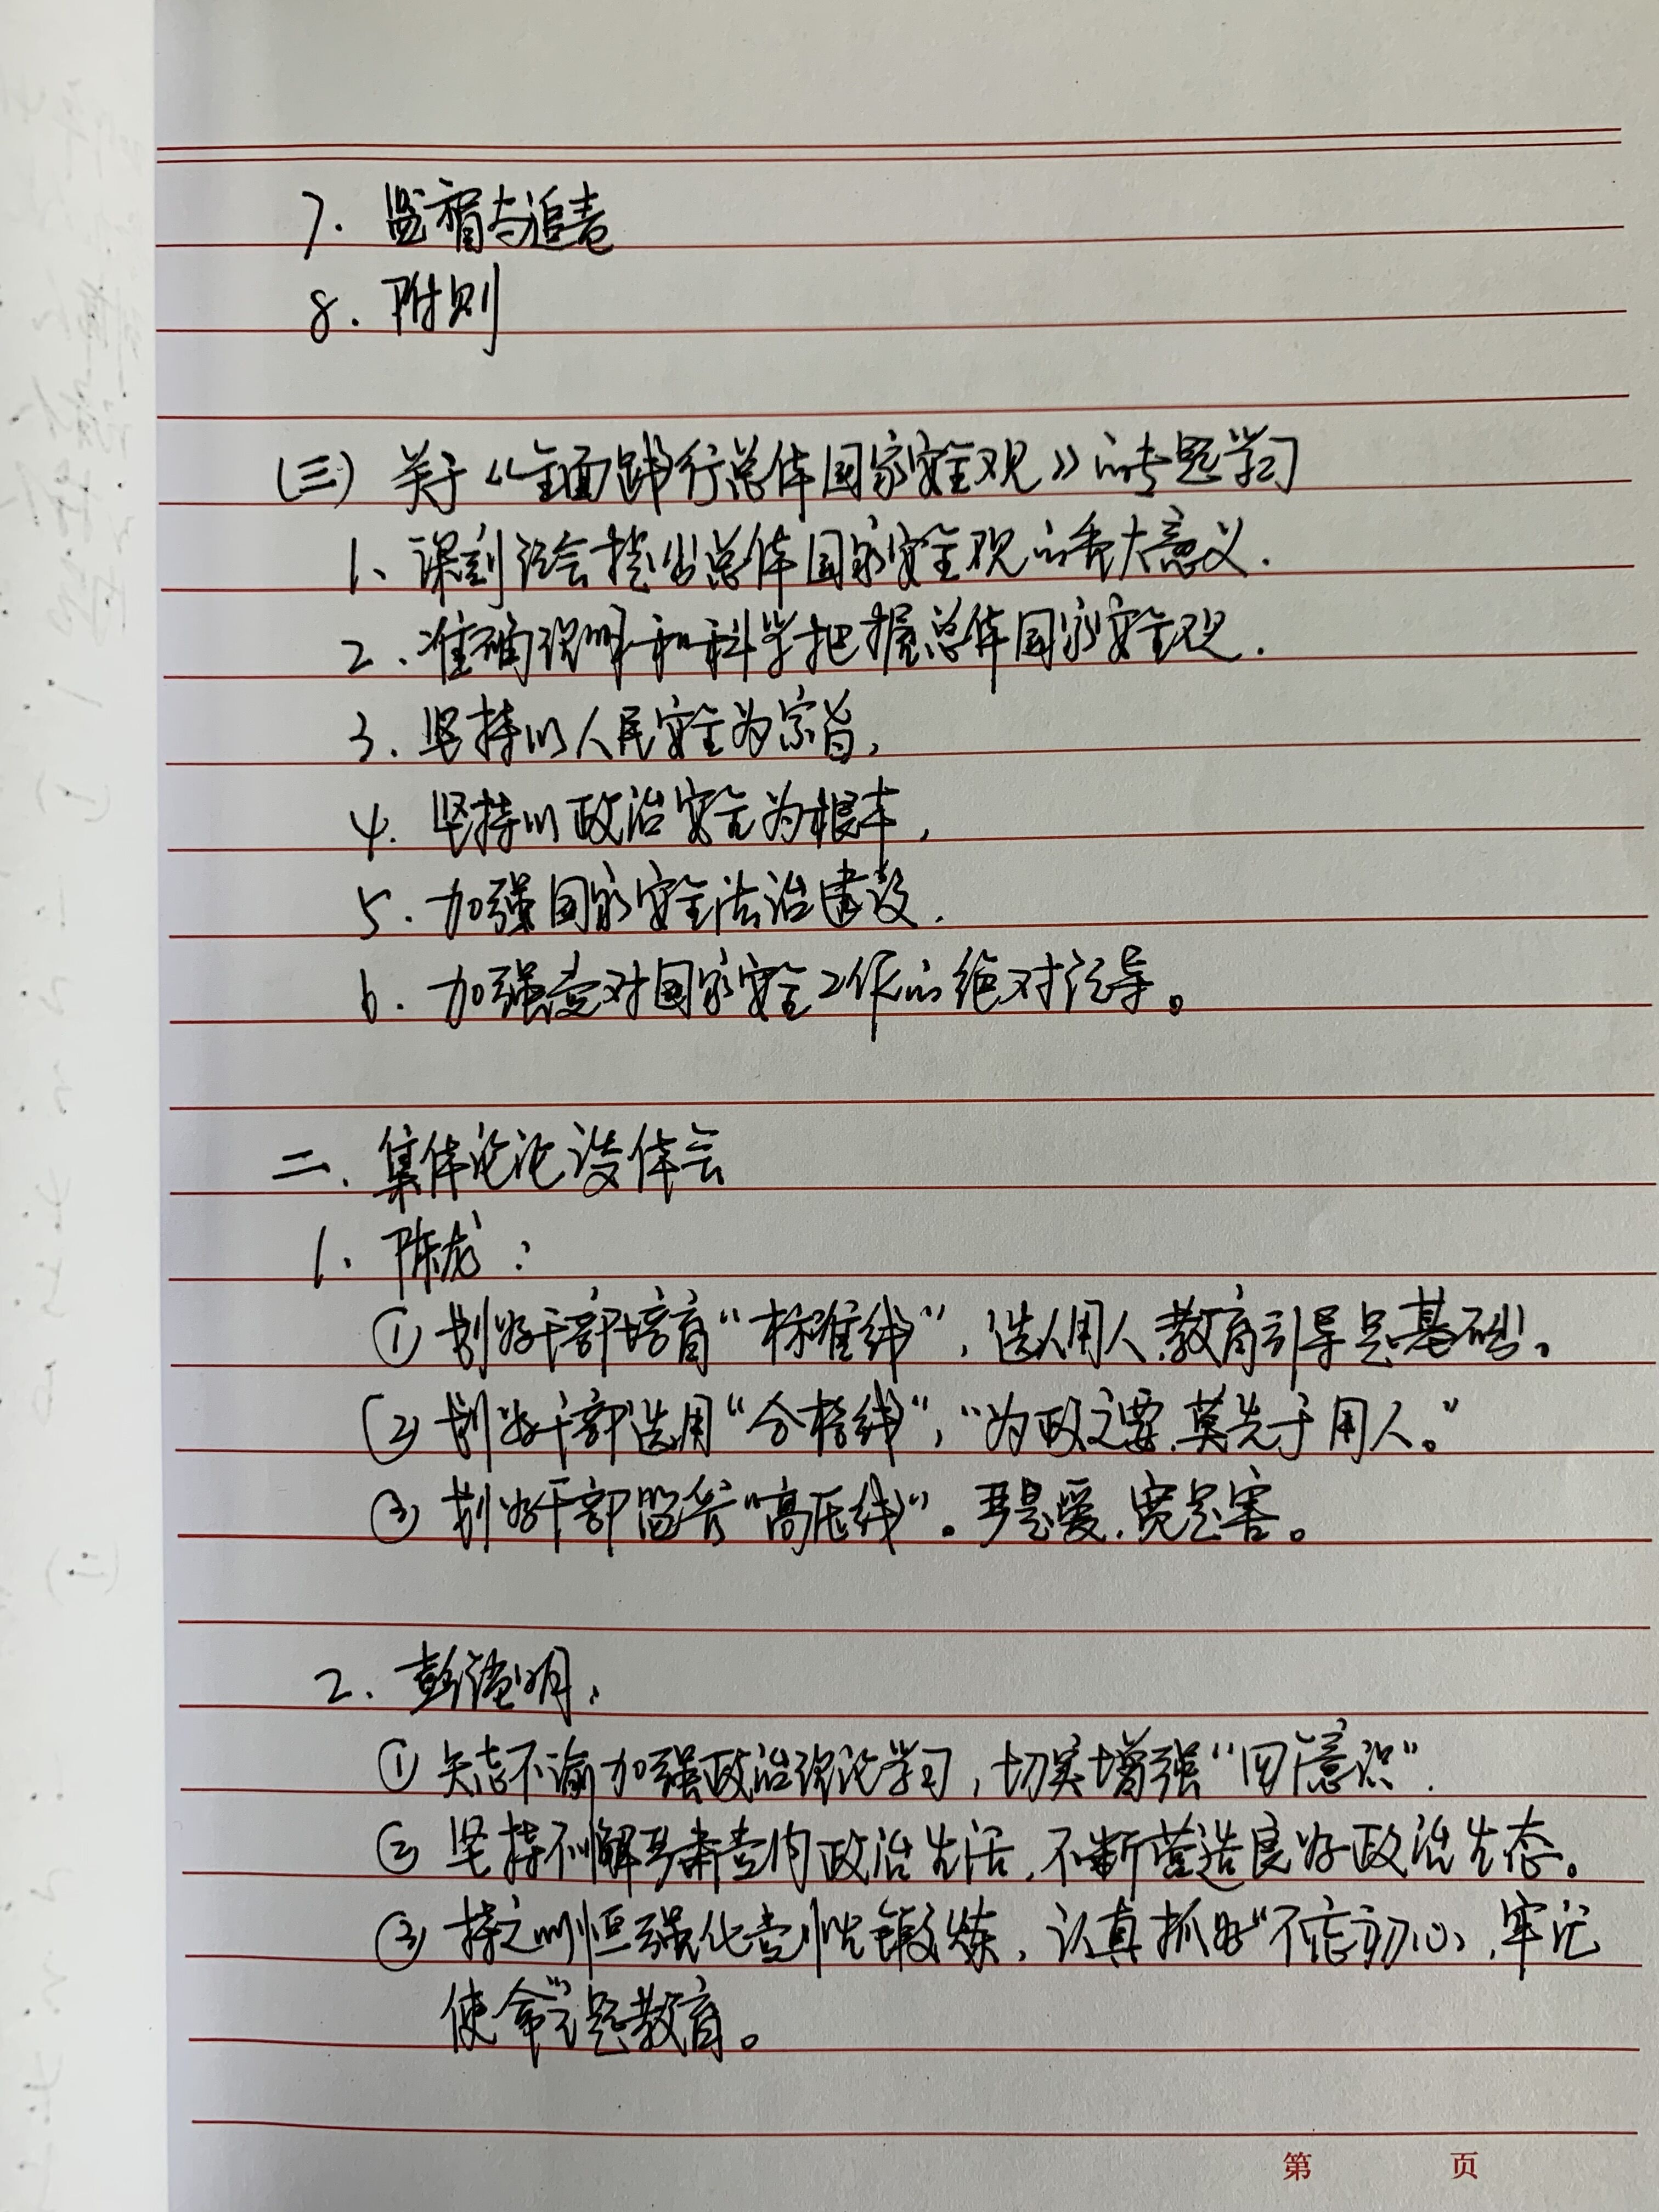 7. 监督与追责
8. 附则
(三) 关于《全面践行总体国家安全观》的专题学习
1、深刻领会提出总体国家安全观的重大意义.
2. 准确理解和科学把握总体国家安全观.
3. 坚持以人民安全为宗旨,
4. 坚持以政治安全为根本,
5. 加强国家安全法治建设.
6. 加强党对国家安全工作的绝对领导。
二、集体讨论谈体会
1、陈龙:
① 划好干部培育“标准线”,选人用人,教育引导是基础。
② 划好干部选用“分格线”,“为政之要,莫先于用人。”
③ 划好干部监督“高压线”。严是爱,宽是害。
2. 彭德明:
① 矢志不渝加强政治理论学习,切实增强“四个意识”.
② 坚持不懈严肃党内政治生活,不断营造良好政治生态。
③ 持之以恒强化党性锻炼,认真抓好“不忘初心,牢记
使命”主题教育。
第 页